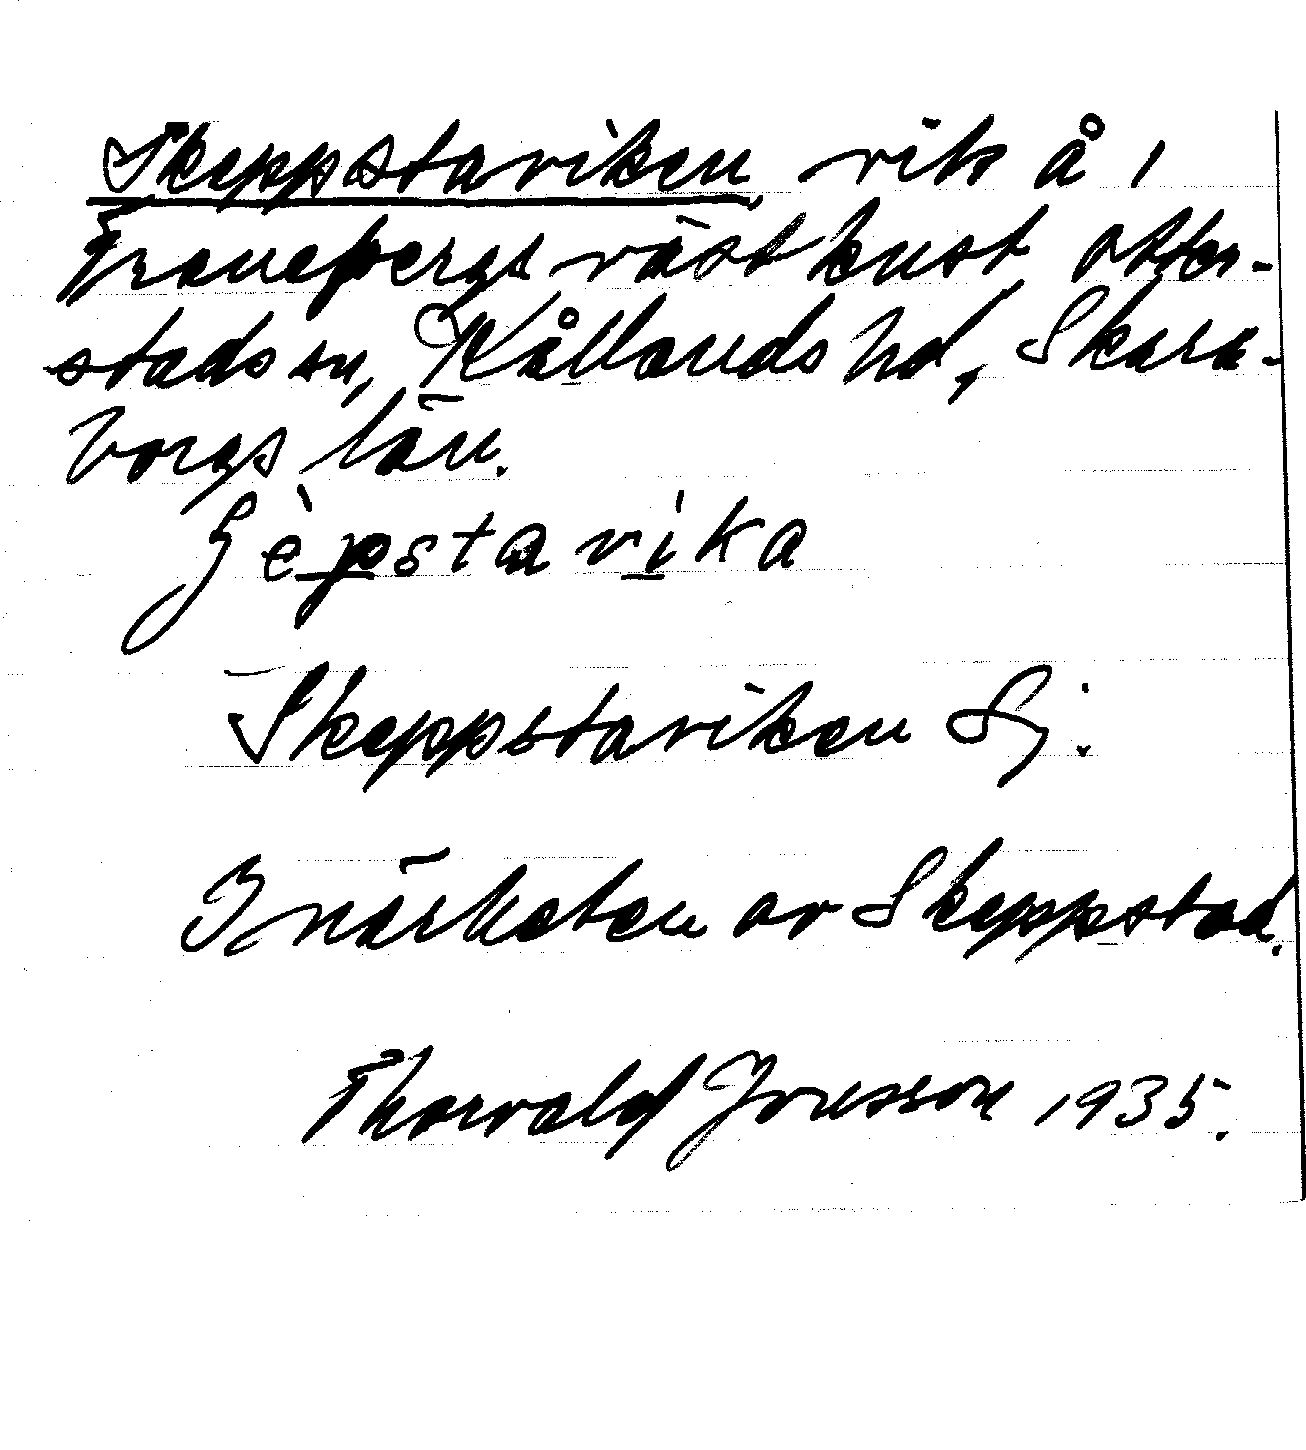 Skeppstaviken, vik å 1
Tranebergs västkust, Otter-
stads sn, Kållands hd, Skara-
borgs län.
ʃèpstavìka
Skeppstaviken Sj.
I närheten av Skeppstad.
Thorvald Jonsson 1935.